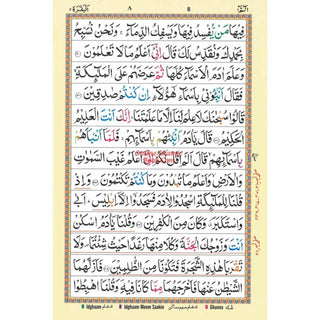 البقرة ٢ ٨ الٓمّٓ ١
فِيهَا مَنْ يُّفْسِدُ فِيهَا وَيَسْفِكُ الدِّمَآءَ ۚ وَنَحْنُ نُسَبِّحُ
بِحَمْدِكَ وَنُقَدِّسُ لَكَ ؕ قَالَ اِنِّيْٓ اَعْلَمُ مَا لَا تَعْلَمُوْنَ
وَعَلَّمَ اٰدَمَ الْاَسْمَآءَ كُلَّهَا ثُمَّ عَرَضَهُمْ عَلَى الْمَلٰٓئِكَةِ
فَقَالَ اَنْۢبِـُٔوْنِيْ بِاَسْمَآءِ هٰٓؤُلَآءِ اِنْ كُنْتُمْ صٰدِقِيْنَ
قَالُوْا سُبْحٰنَكَ لَا عِلْمَ لَنَآ اِلَّا مَا عَلَّمْتَنَا ؕ اِنَّكَ اَنْتَ الْعَلِيْمُ
الْحَكِيْمُ قَالَ يٰٓاٰدَمُ اَنْۢبِئْهُمْ بِاَسْمَآئِهِمْ ۚ فَلَمَّآ اَنْۢبَاَهُمْ
بِاَسْمَآئِهِمْ قَالَ اَلَمْ اَقُلْ لَّكُمْ اِنِّيْٓ اَعْلَمُ غَيْبَ السَّمٰوٰتِ
وَالْاَرْضِ وَاَعْلَمُ مَا تُبْدُوْنَ وَمَا كُنْتُمْ تَكْتُمُوْنَ وَاِذْ
قُلْنَا لِلْمَلٰٓئِكَةِ اسْجُدُوْا لِاٰدَمَ فَسَجَدُوْٓا اِلَّآ اِبْلِيْسَ ؕ اَبٰى
وَاسْتَكْبَرَ وَكَانَ مِنَ الْكٰفِرِيْنَ وَقُلْنَا يٰٓاٰدَمُ اسْكُنْ
اَنْتَ وَزَوْجُكَ الْجَنَّةَ وَكُلَا مِنْهَا رَغَدًا حَيْثُ شِئْتُمَا وَلَا
تَقْرَبَا هٰذِهِ الشَّجَرَةَ فَتَكُوْنَا مِنَ الظّٰلِمِيْنَ فَاَزَلَّهُمَا
الشَّيْطٰنُ عَنْهَا فَاَخْرَجَهُمَا مِمَّا كَانَا فِيْهِ ۪ وَقُلْنَا اهْبِطُوْا
Idghaam Idghaam Meem Saakin Ghunna